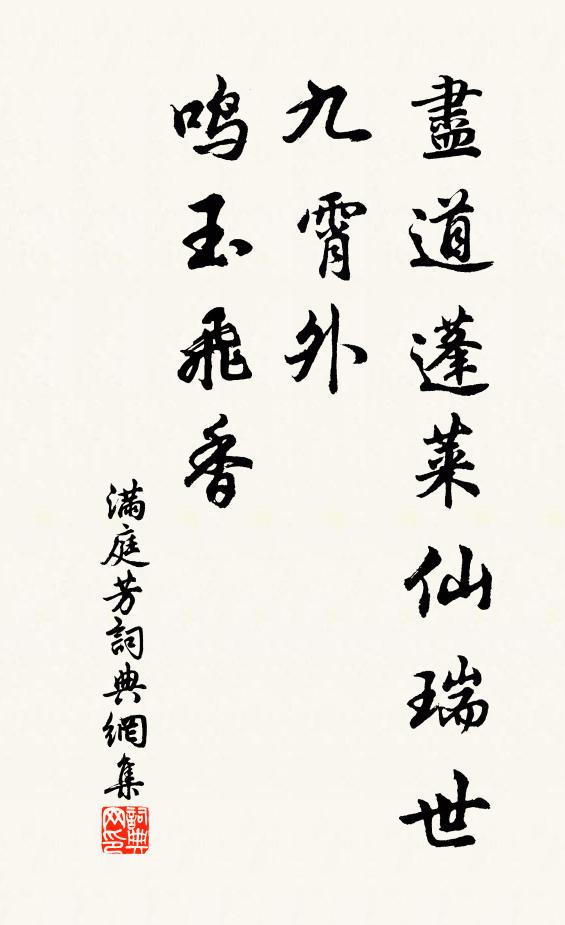 盡道蓬莱仙瑞世
九霄外
鸣玉飛香
满庭芳詞典網集
詞典
网印